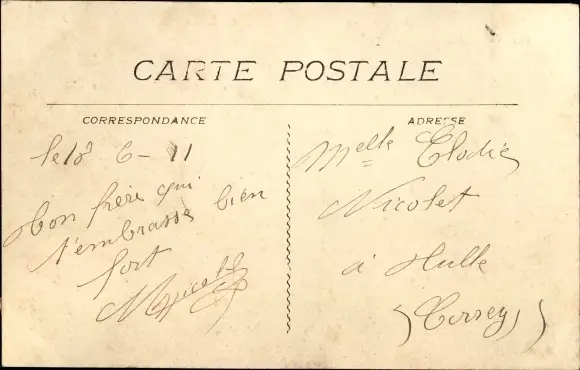 CARTE POSTALE
CORRESPONDANCE
le 18 6 - 11
Mon frère qui
t'embrasse bien
fort
ADRESSE
Melle Elodie
Nicolet
à